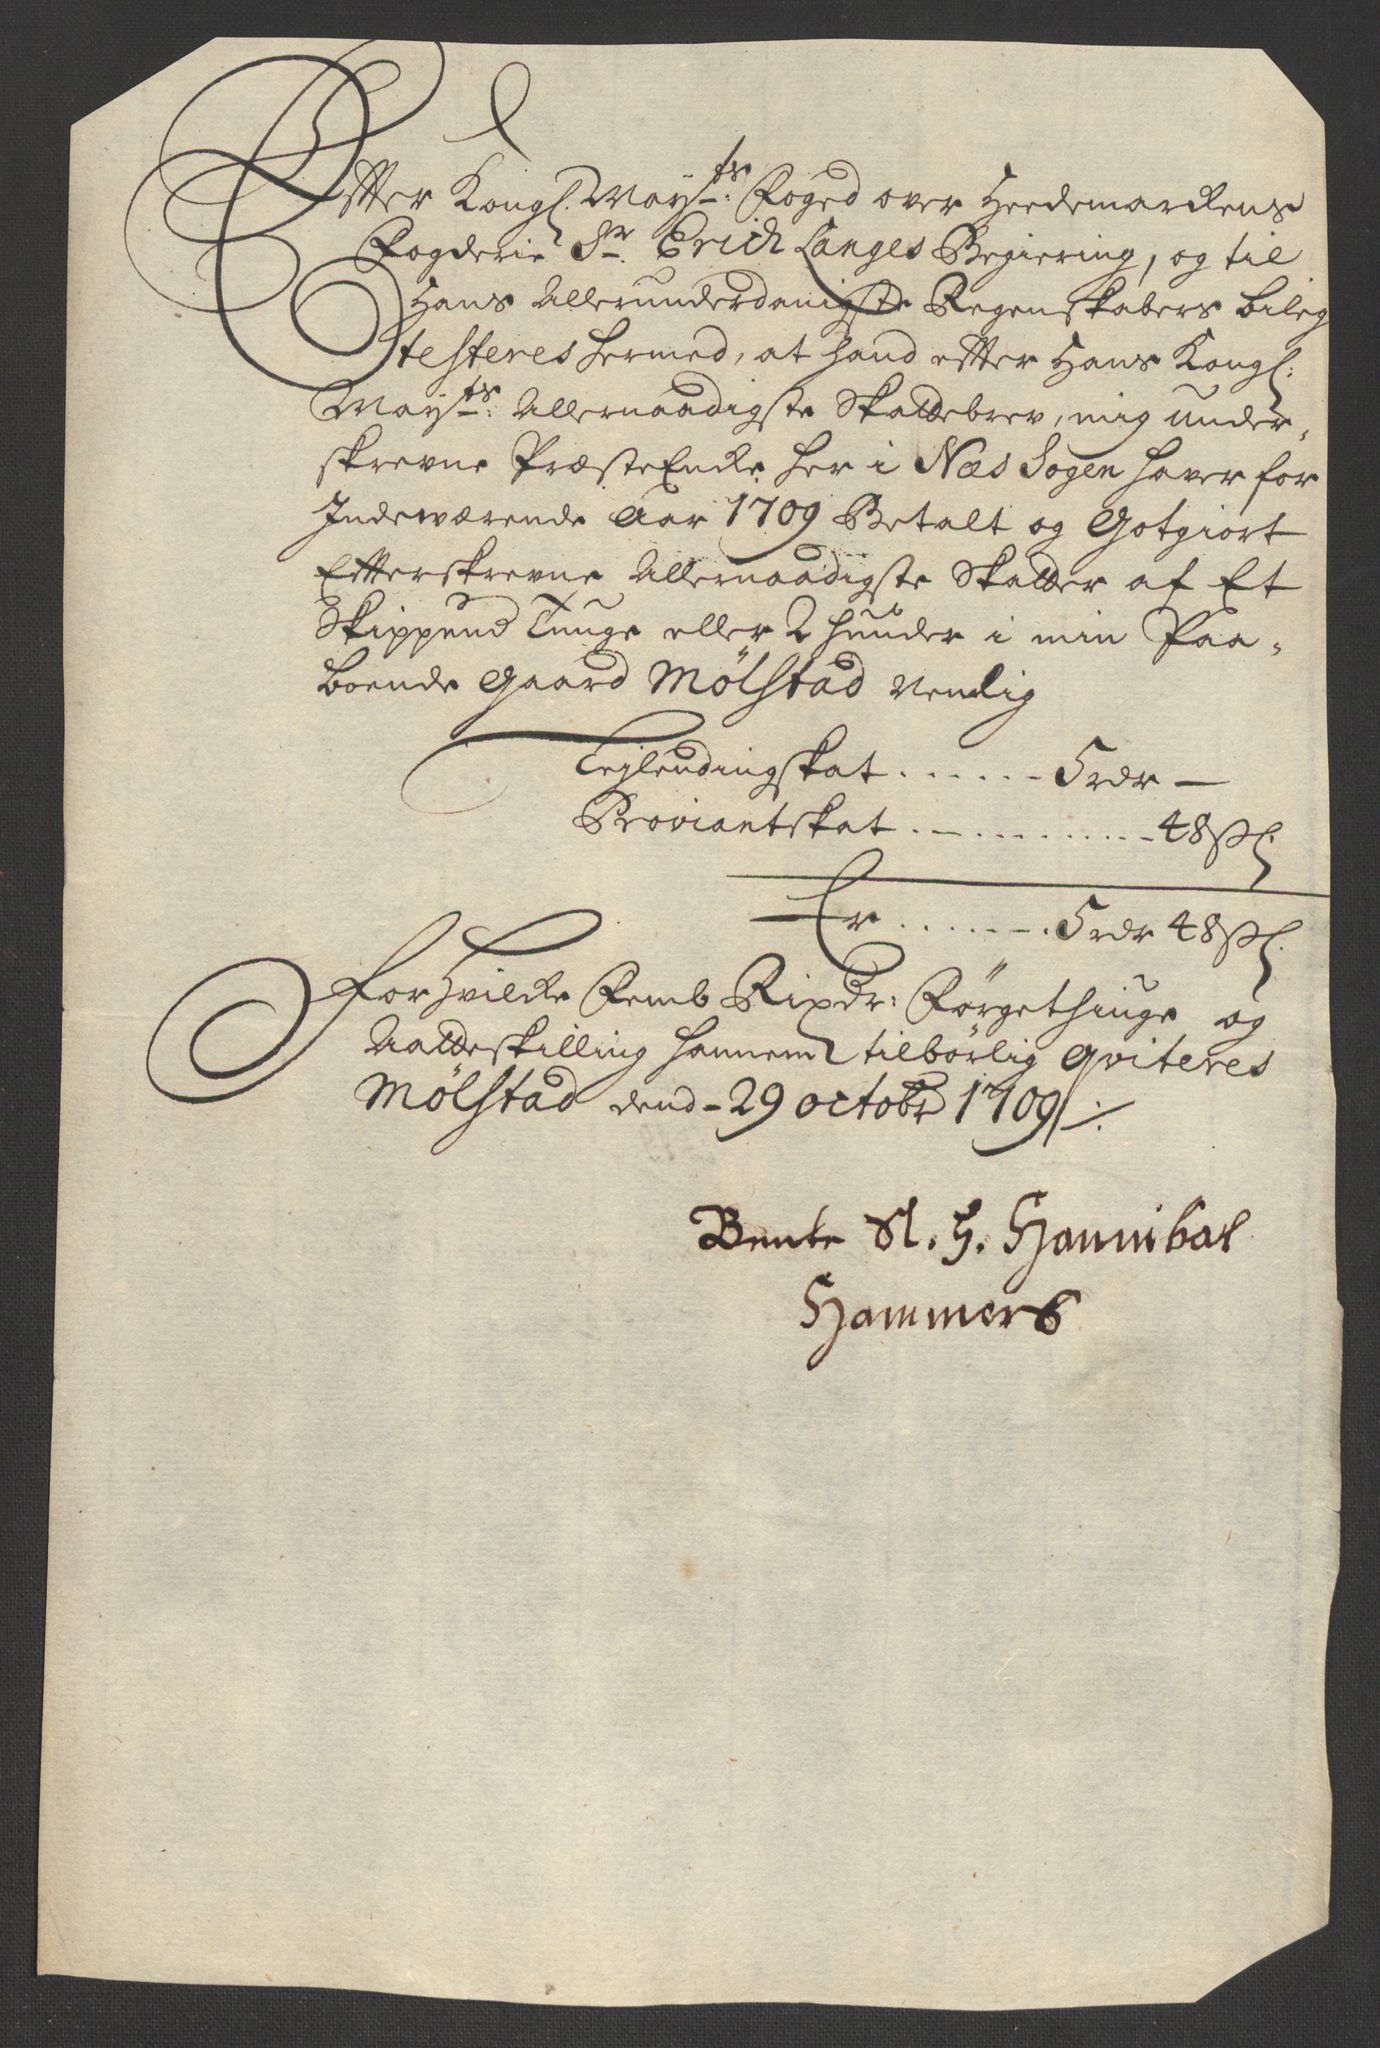 Effter Kongl. Mayts: Foged over Heedemarckens
Fogderie Sr. Erich Langes Begiering, og til
Hans Allerunderdanigste Regenskabers bileg
testeres hermed, at hand effter Hans Kongl:
Mayts: Allernaadigste Skattebrev, mig under-
skrevne PræsteEncke her i Næs Sogen haver for
Indeværende Aar 1709 Betalt og Gotgiort
Effterskrevne Allernaadigste Skatter af Et
Skippund Tunge eller 2 huuder i min Paa-
boende Gaard Mölstad Nemlig
Lejlendingskat . . . . . . 5 rdr —
Proviantskat . . . . . . . . . 48 sh:
Er . . . . . . 5 rdr 48 sh:
For Hvilcke Femb Rixdr: Förgethiuge og
Aatteskilling hannem tilbörlig Qviteres
Mölstad dend 29 octobr 1709 /:
Bente Sl. H. Hannibal
Hammers